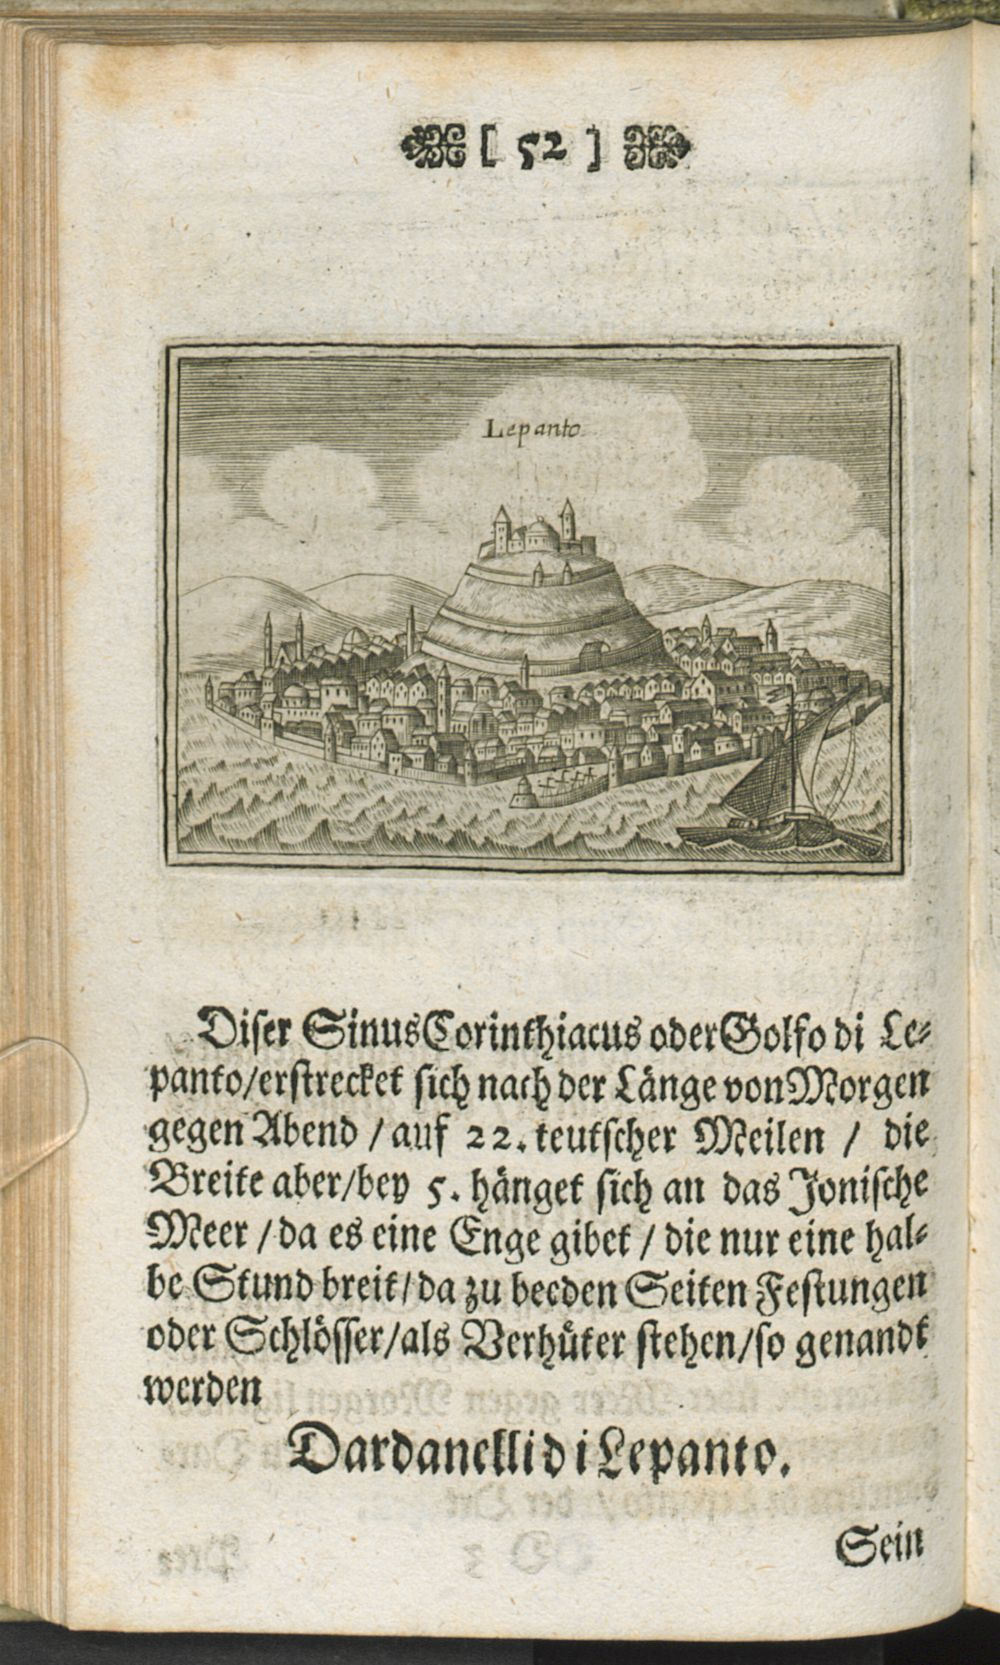 [ 52 ]
Lepanto
Diser Sinus Corinthiacus oder Golfo di Le-
panto/erstrecket sich nach der Länge von Morgen
gegen Abend / auf 22. teutscher Meilen / die
Breite aber/bey 5. hänget sich an das Jonische
Meer / da es eine Enge gibet / die nur eine hal-
be Stund breit/da zu beeden Seiten Festungen
oder Schlösser/als Verhüter stehen/so genandt
werden
Dardanelli di Lepanto.
Sein